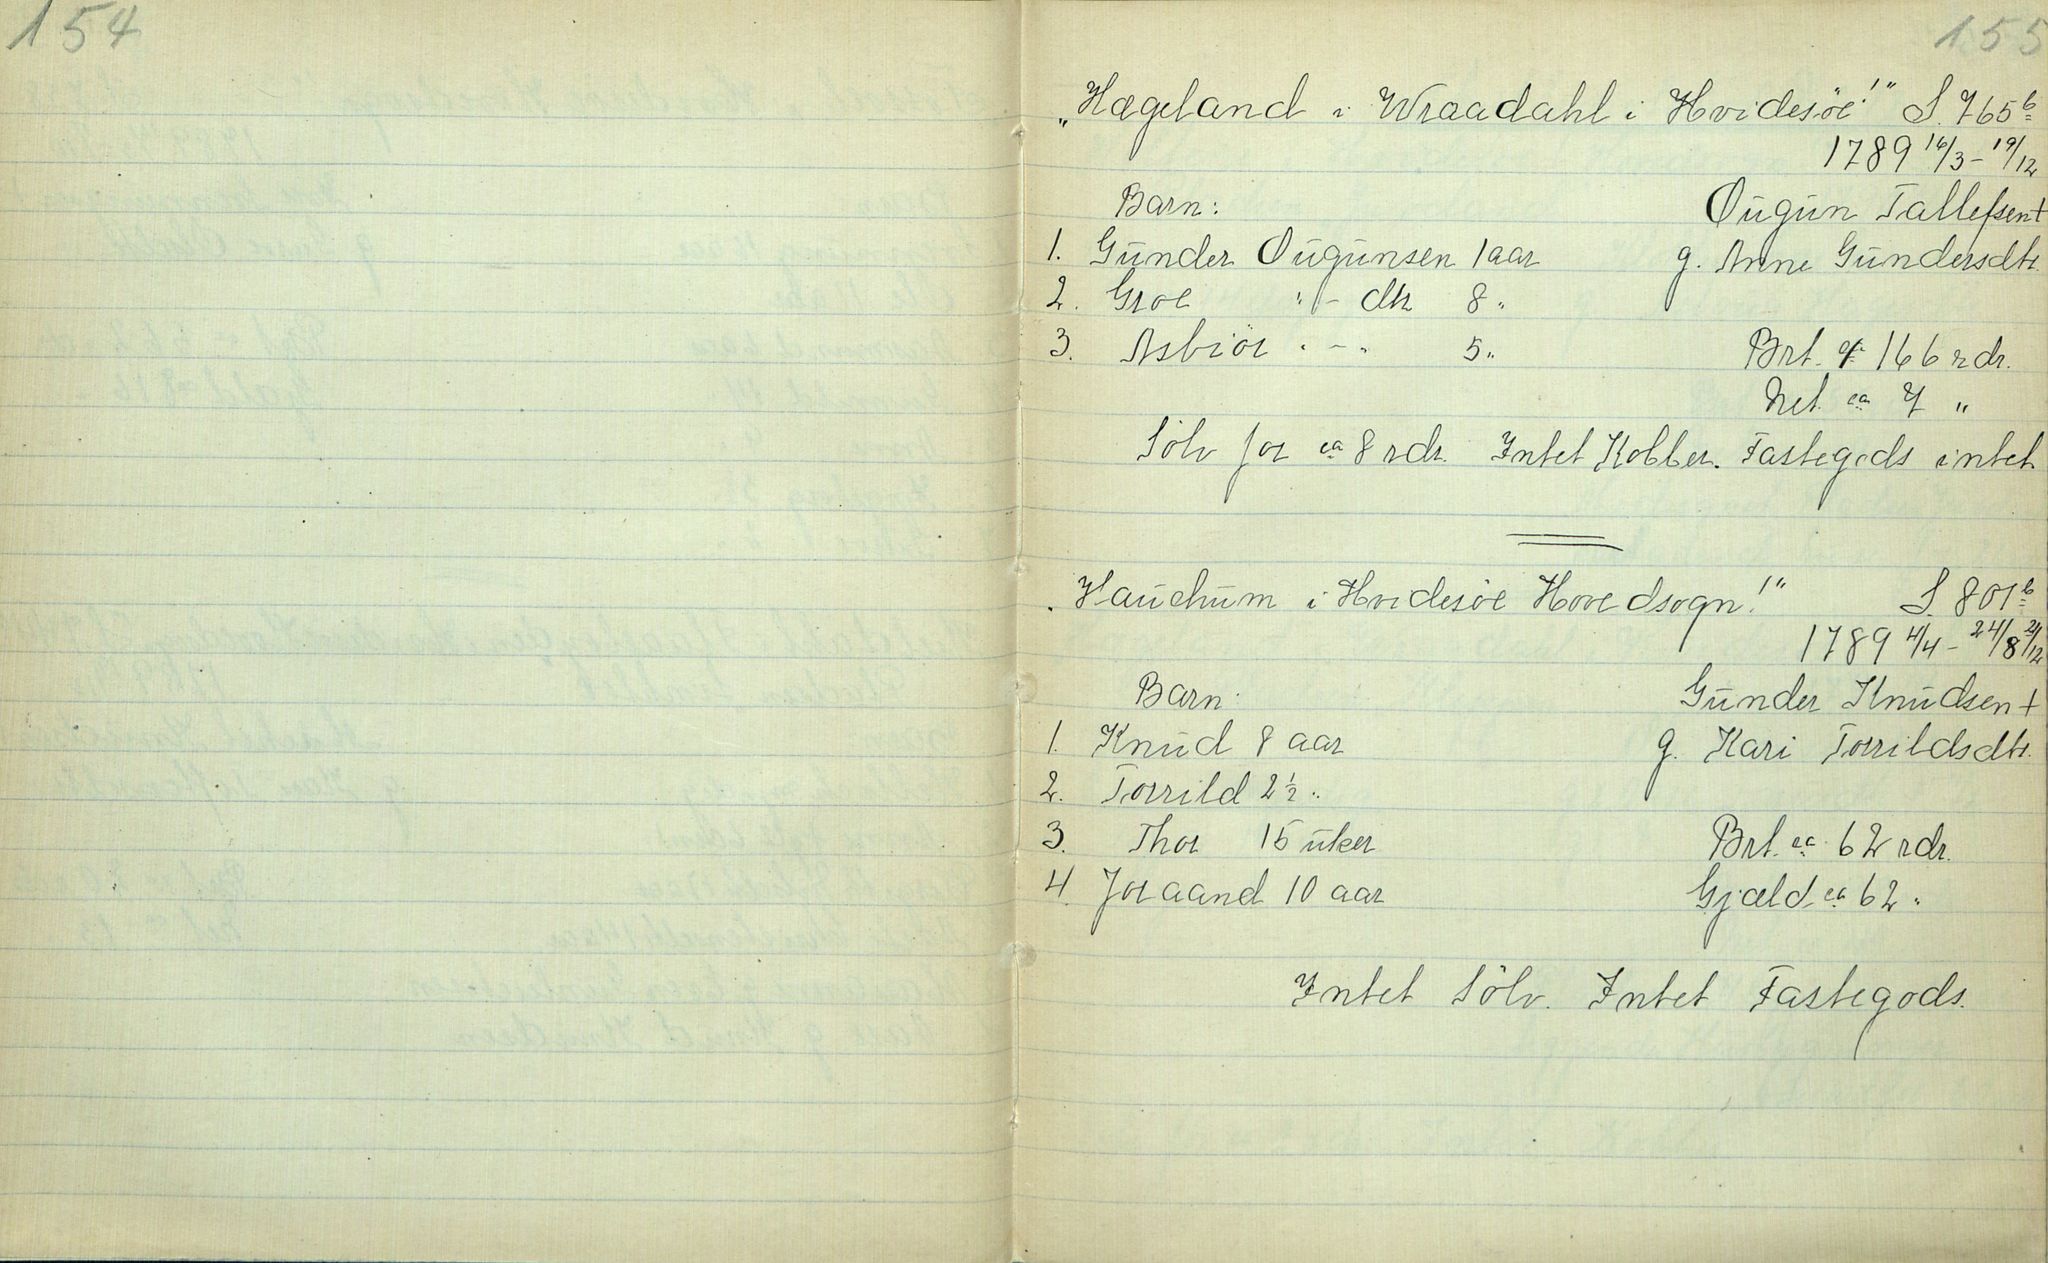 154
155
„Hægeland i Wraadahl i Hvidesöe!" S. 765 b
1789 16/3 - 19/12
Barn: Ougun Tallefsen +
1. Gunder Ougunsen 1 aar g. Anne Gundersdtr.
2. Groe " - dtr 8 "
3. Asbiör " - " 5 " Brt. ca 166 rdr.
Net. ca 7 "
Sölv for ca 8 rdr. Intet Kobber. Fastegods intet
„Hauchum i Hvidesöe Hovedsogn!" S. 801 b
1789 4/4 - 24/8 21/12
Barn: Gunder Knudsen +
1. Knud 8 aar g. Kari Torrildsdtr.
2. Torrild 2 1/2 "
3. Thor 15 uker Brt. ca 62 rdr.
4. Joraand 10 aar Gjæld ca 62 "
Intet Sölv. Intet Fastegods.